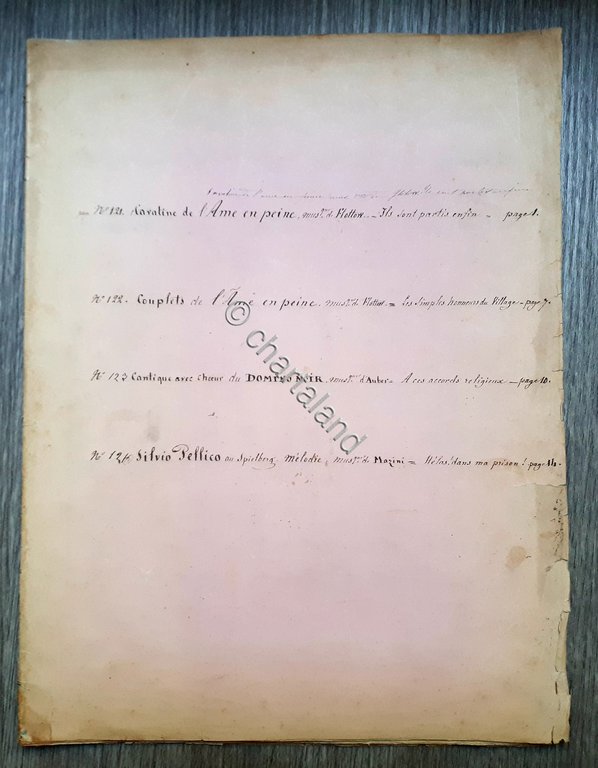 Nº 121. Cavatine de l'Ame en peine, musq. de Flottow. — Ils sont partis enfin — page 1.
Nº 122. Couplets de l'Ame en peine, musq. de Flottow = Les simples honneurs du Village — page 7.
Nº 123 Cantique avec chœur du DOMINO NOIR, musq. d'Auber — A ces accords religieux — page 10.
Nº 124. Silvio Pellico au Spielberg, Mélodie, musq. de Mazini = Hélas! dans ma prison! page 14.
© chartaland